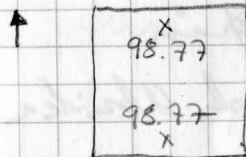 x
98.77
98.77
x